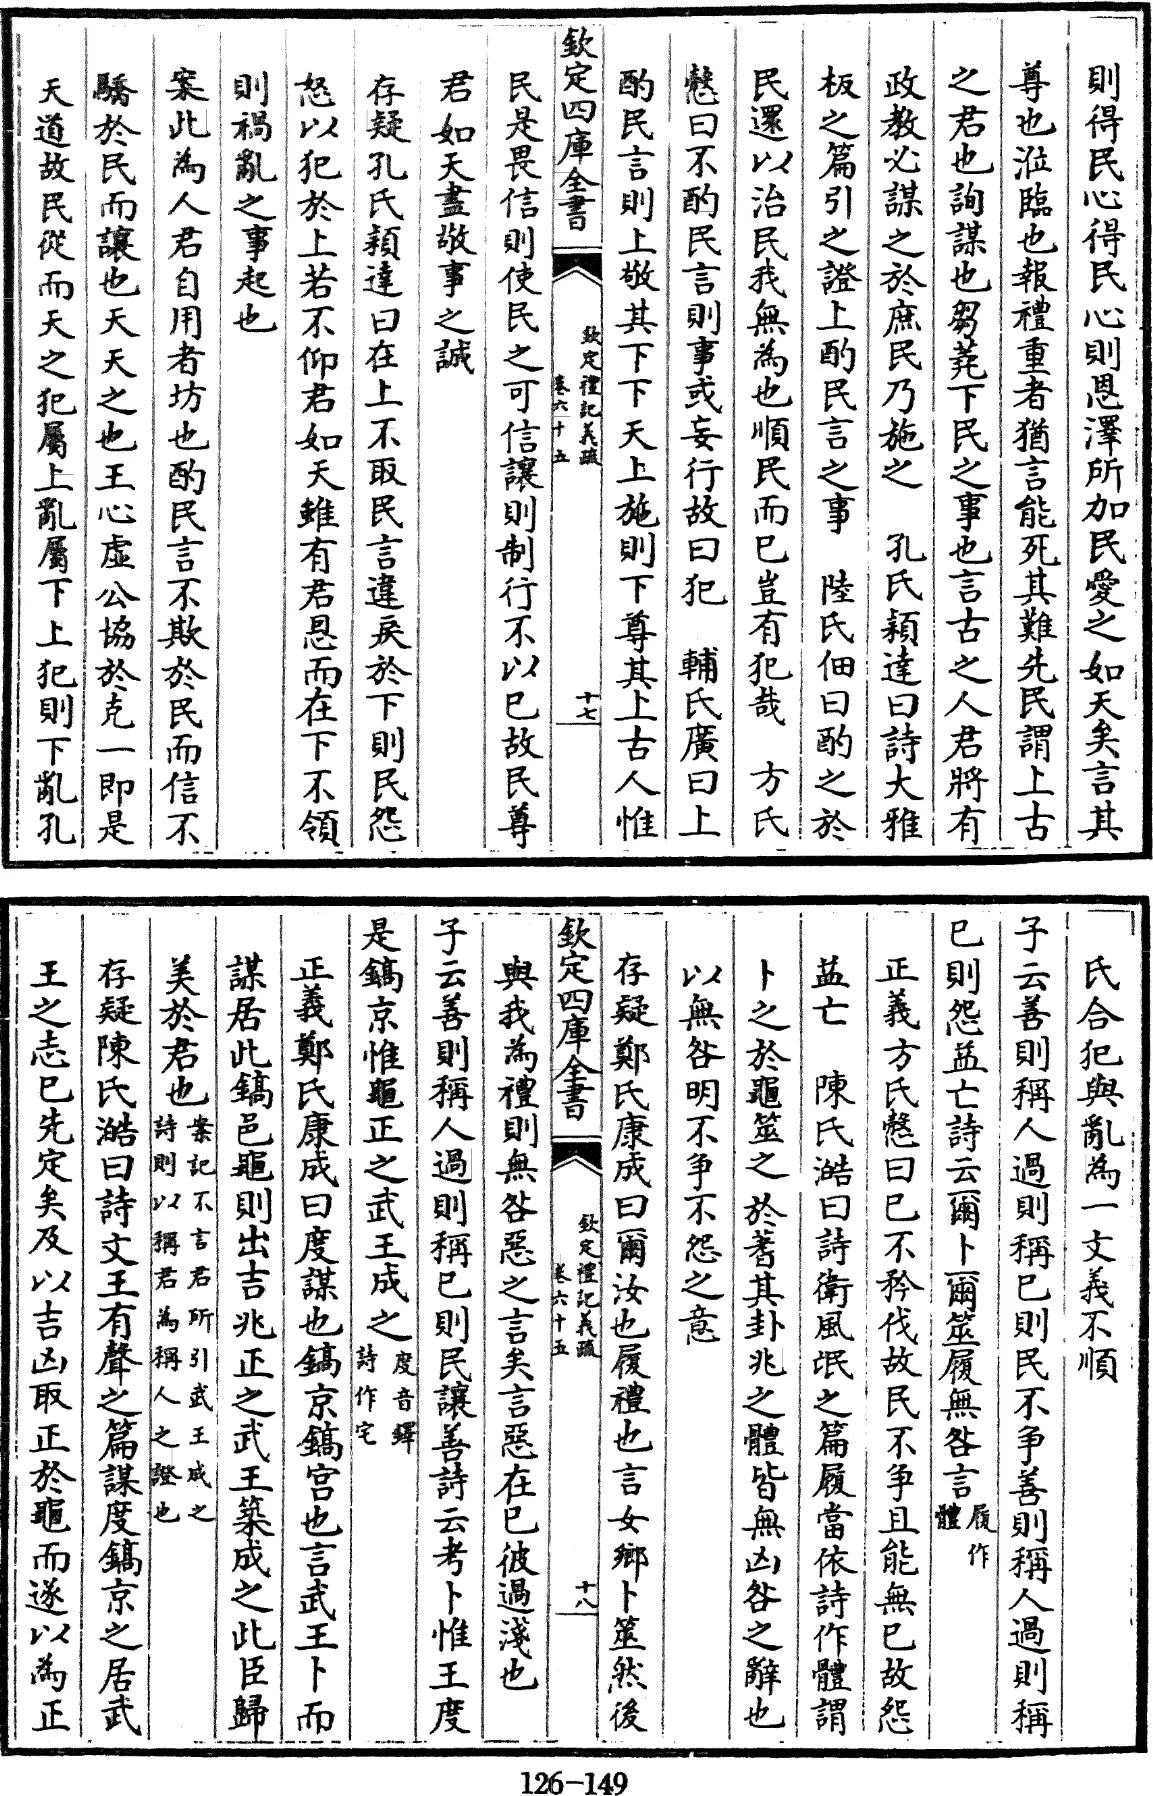 則得民心得民心則恩澤所加民愛之如天矣言其
尊也涖臨也報禮重者猶言能死其難先民謂上古
之君也詢謀也芻蕘下民之事也言古之人君將有
政教必謀之於庶民乃施之　孔氏穎達曰詩大雅
板之篇引之證上酌民言之事　陸氏佃曰酌之於
民還以治民我無為也順民而已豈有犯哉　方氏
慤曰不酌民言則事或妄行故曰犯　輔氏廣曰上
酌民言則上敬其下下天上施則下尊其上古人惟
欽定四庫全書
欽定禮記義疏
卷六十五
十七
民是畏信則使民之可信讓則制行不以已故民尊
君如天盡敬事之誠
存疑孔氏穎達曰在上不取民言違戾於下則民怨
怒以犯於上若不仰君如天雖有君恩而在下不領
則禍亂之事起也
案此為人君自用者坊也酌民言不欺於民而信不
驕於民而讓也天天之也王心虛公協於克一即是
天道故民從而天之犯屬上亂屬下上犯則下亂孔
氏合犯與亂為一文義不順
子云善則稱人過則稱已則民不争善則稱人過則稱
已則怨益亡詩云爾卜爾筮履無咎言
履作
體
正義方氏慤曰已不矜伐故民不争且能無已故怨
益亡　陳氏澔曰詩衛風氓之篇履當依詩作體謂
卜之於龜筮之於蓍其卦兆之體皆無凶咎之辭也
以無咎明不争不怨之意
存疑鄭氏康成曰爾汝也履禮也言女鄉卜筮然後
欽定四庫全書
欽定禮記義疏
卷六十五
十八
與我為禮則無咎惡之言矣言惡在已彼過淺也
子云善則稱人過則稱已則民讓善詩云考卜惟王度
是鎬京惟龜正之武王成之
度音鐸
詩作宅
正義鄭氏康成曰度謀也鎬京鎬宫也言武王卜而
謀居此鎬邑龜則出吉兆正之武王築成之此臣歸
美於君也
案記不言君所引武王成之
詩則以稱君為稱人之證也
存疑陳氏澔曰詩文王有聲之篇謀度鎬京之居武
王之志已先定矣及以吉凶取正於龜而遂以為正
126-149